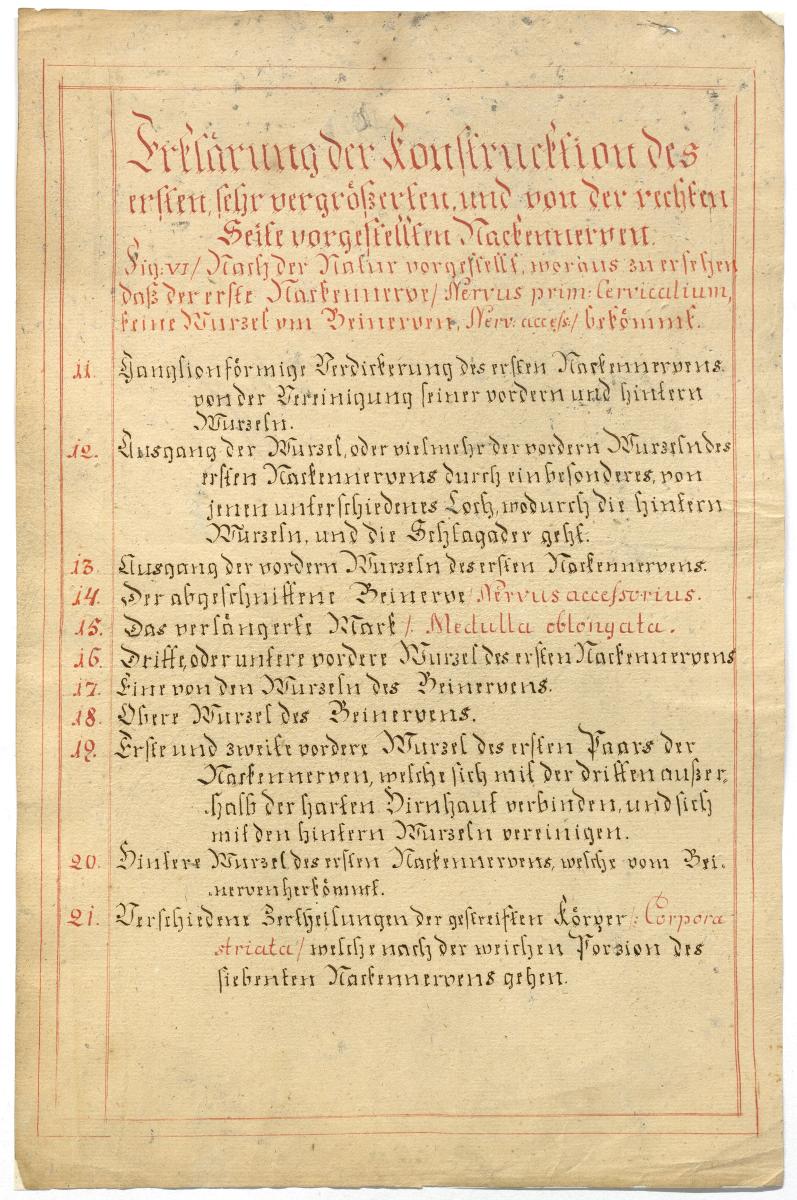 Erklärung der Konstrucktion des
ersten, sehr vergrößerten, und von der rechten
Seite vorgestellten Nackennerven.
Fig: VI / Nach der Natur vorgestellt, woraus zu ersehen
daß der erste Nackennerve / Nervus prim: Cervicalium,
keine Wurzel vom Beinerven, Nerv: access:/ bekömmt.
11. Ganglionförmige Verdickerung des ersten Nackennervens
von der Vereinigung seiner vordern und hintern
Wurzeln.
12. Ausgang der Wurzel, oder vielmehr der vordern Wurzeln des
ersten Nackennervens durch ein besonderes, von
jenen unterschiedenes Loch, wodurch die hintern
Wurzeln, und die Schlagader geht.
13. Ausgang der vordern Wurzeln des ersten Nackennervens.
14. Der abgeschnittene Beinerve / Nervus accessorius.
15. Das verlängerte Mark /. Medulla oblongata.
16. Dritte, oder untere vordere Wurzel des ersten Nackennervens
17. Eine von den Wurzeln des Beinervens.
18. Obere Wurzel des Beinervens.
19. Erste und zweite vordere Wurzel des ersten Paars der
Nackennerven, welche sich mit der dritten außer-
halb der harten Hirnhaut verbinden, und sich
mit den hintern Wurzeln vereinigen.
20. Hintere Wurzel des ersten Nackennervens, welche vom Bei-
nerven herkömmt.
21. Verschiedene Zertheilungen der gestreiften Körper /: Corpora
striata / welche nach der weichen Porzion des
siebenten Nackennervens gehen.